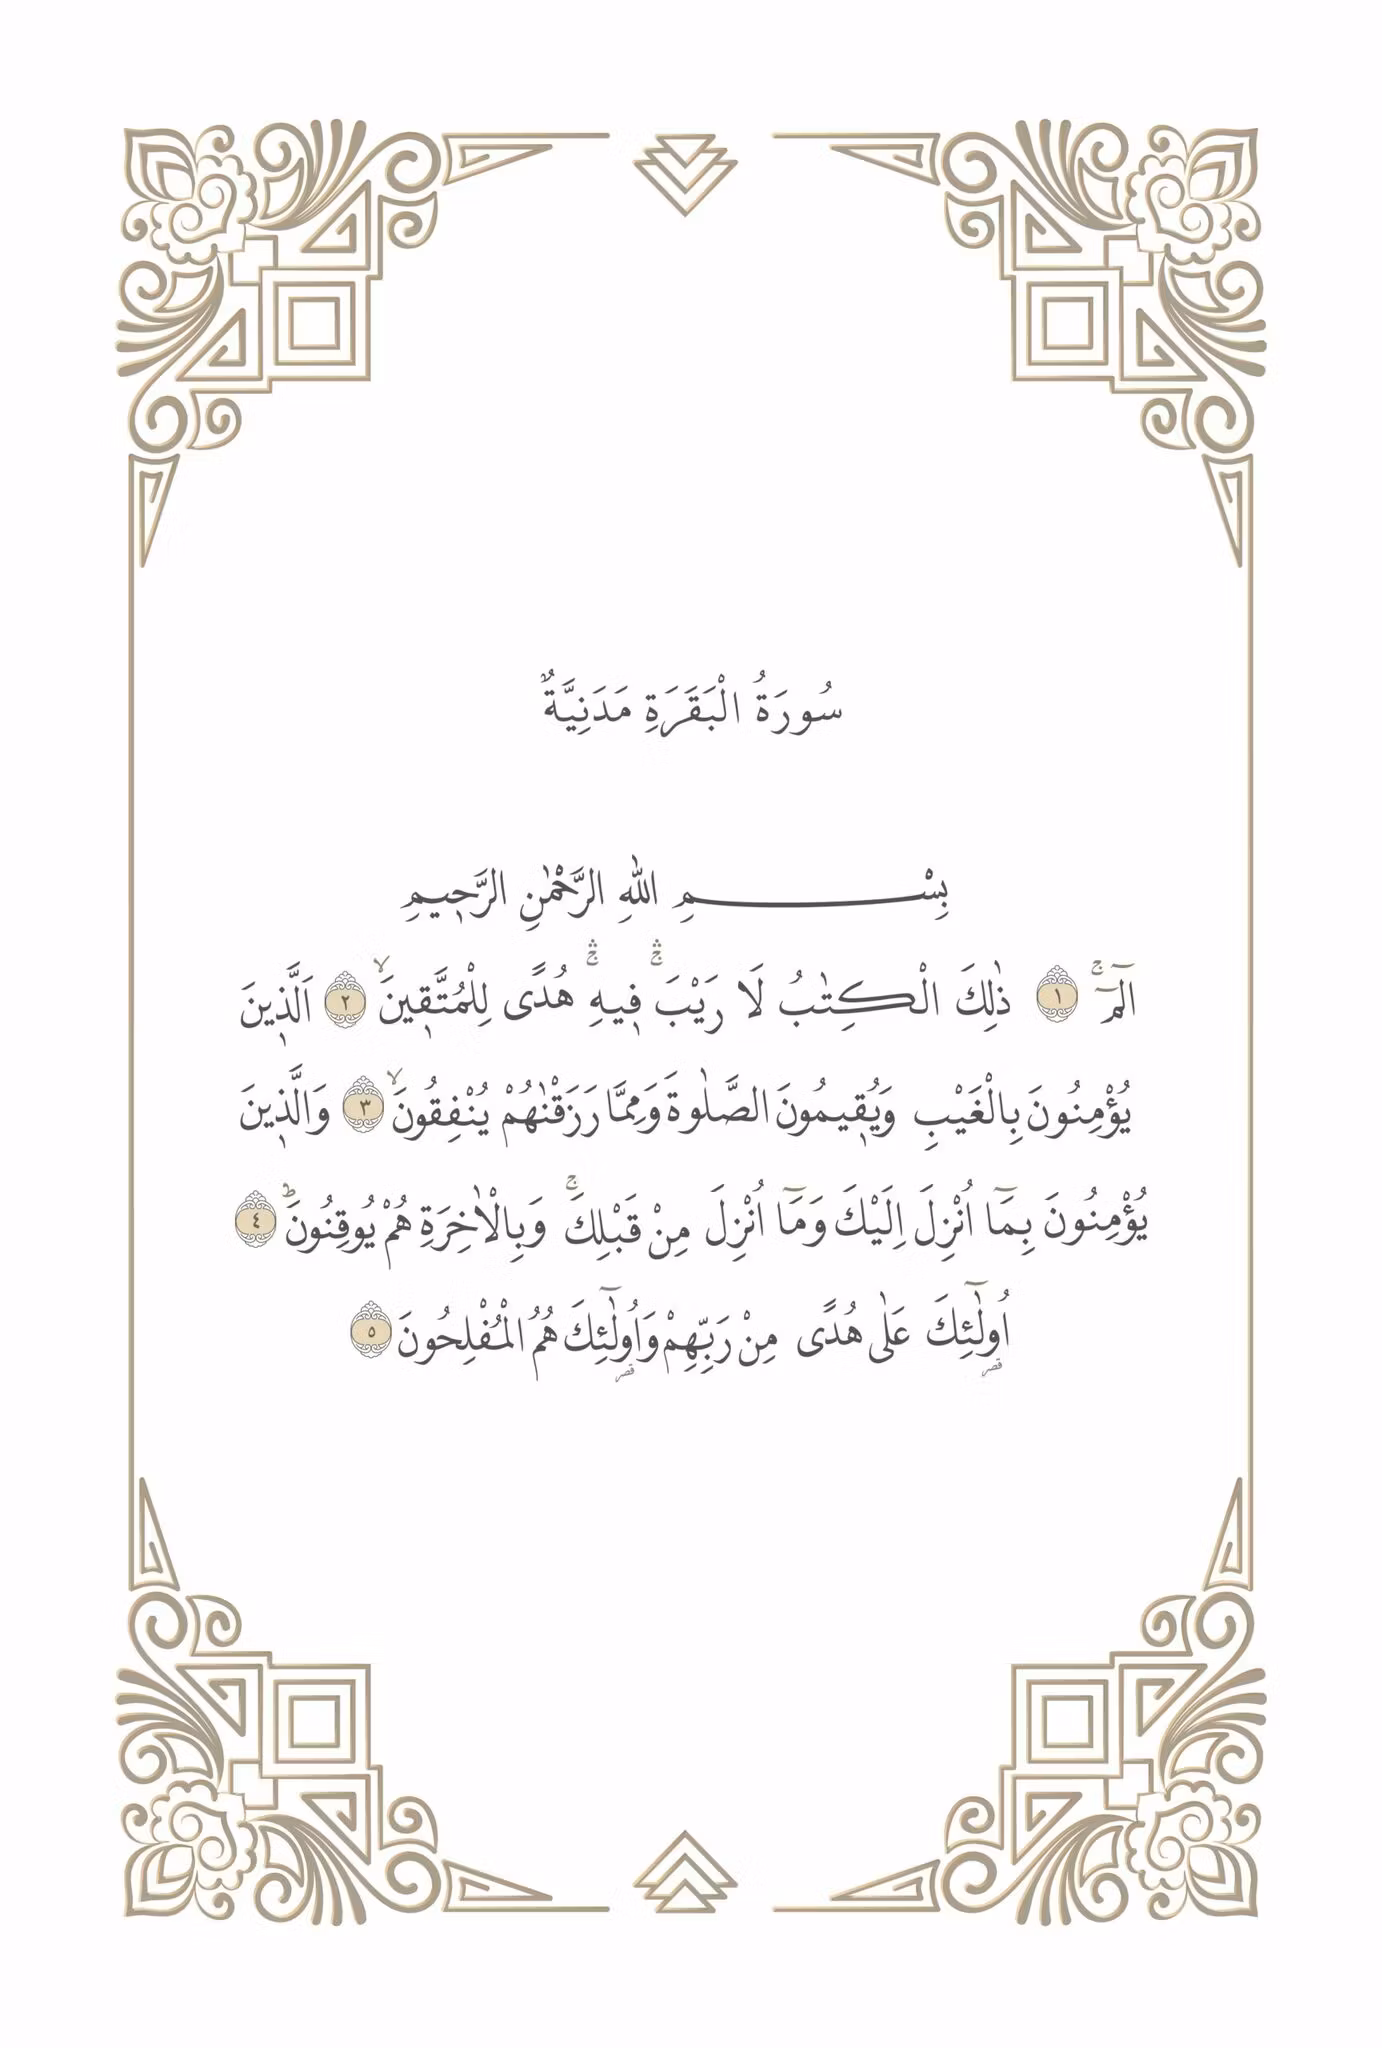 سُورَةُ الْبَقَرَةِ مَدَنِيَّةٌ
بِسْــــــــمِ اللّٰهِ الرَّحْمٰنِ الرَّح۪يمِ
الٓمٓ ۚ ﴿١﴾ ذٰلِكَ الْكِتٰبُ لَا رَيْبَ ۛۚ ف۪يهِ ۛۚ هُدًى لِلْمُتَّق۪ينَۙ ﴿٢﴾ اَلَّذ۪ينَ
يُؤْمِنُونَ بِالْغَيْبِ وَيُق۪يمُونَ الصَّلٰوةَ وَمِمَّا رَزَقْنٰهُمْ يُنْفِقُونَۙ ﴿٣﴾ وَالَّذ۪ينَ
يُؤْمِنُونَ بِمَٓا اُنْزِلَ اِلَيْكَ وَمَٓا اُنْزِلَ مِنْ قَبْلِكَۚ وَبِالْاٰخِرَةِ هُمْ يُوقِنُونَۜ ﴿٤﴾
اُو۬لٰٓئِكَ عَلٰى هُدًى مِنْ رَبِّهِمْ وَاُو۬لٰٓئِكَ هُمُ الْمُفْلِحُونَ ﴿٥﴾
قصر قصر